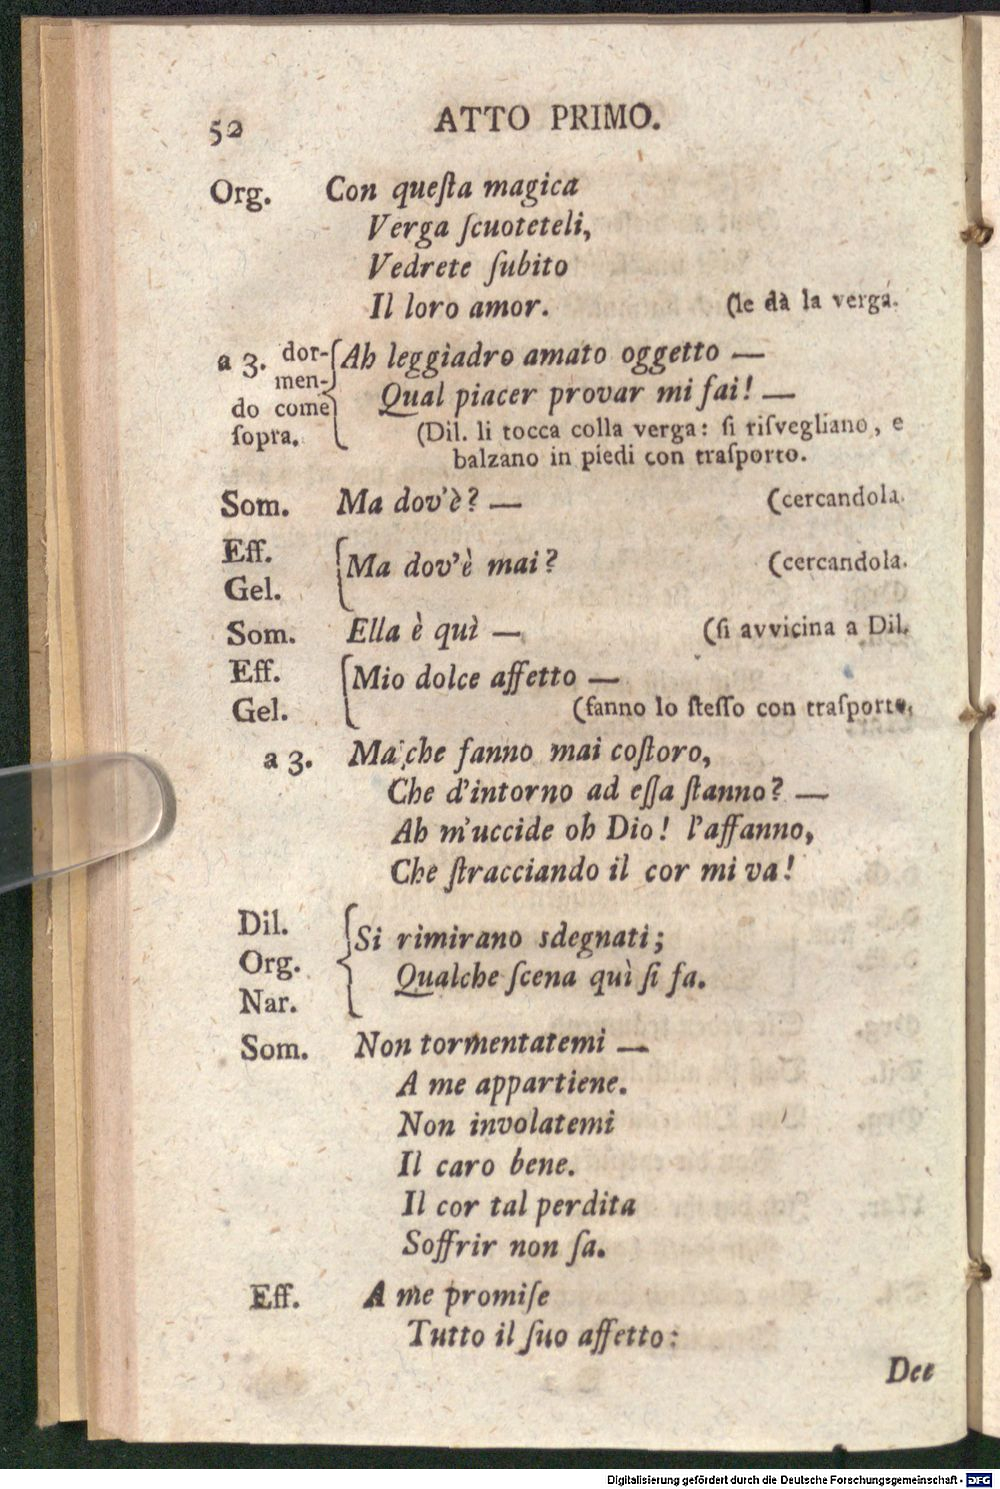 52 ATTO PRIMO.
Org. Con queſta magica
Verga ſcuoteteli,
Vedrete ſubito
Il loro amor. (le dà la verga.
a 3. dor- Ah leggiadro amato oggetto —
men- Qual piacer provar mi fai! —
do come
ſopra. (Dil. li tocca colla verga: ſi riſvegliano, e
balzano in piedi con traſporto.
Som. Ma dov'è? — (cercandola.
Eff.
Gel. Ma dov'è mai? (cercandola.
Som. Ella è quì — (ſi avvicina a Dil.
Eff. Mio dolce affetto —
Gel. (fanno lo ſteſſo con traſporto.
a 3. Ma che fanno mai coſtoro,
Che d'intorno ad eſſa ſtanno? —
Ah m'uccide oh Dio! l'affanno,
Che ſtracciando il cor mi va!
Dil. Si rimirano sdegnati;
Org. Qualche ſcena quì ſi fa.
Nar.
Som. Non tormentatemi —
A me appartiene.
Non involatemi
Il caro bene.
Il cor tal perdita
Soffrir non ſa.
Eff. A me promiſe
Tutto il ſuo affetto:
Dee
Digitalisierung gefördert durch die Deutsche Forschungsgemeinschaft - DFG